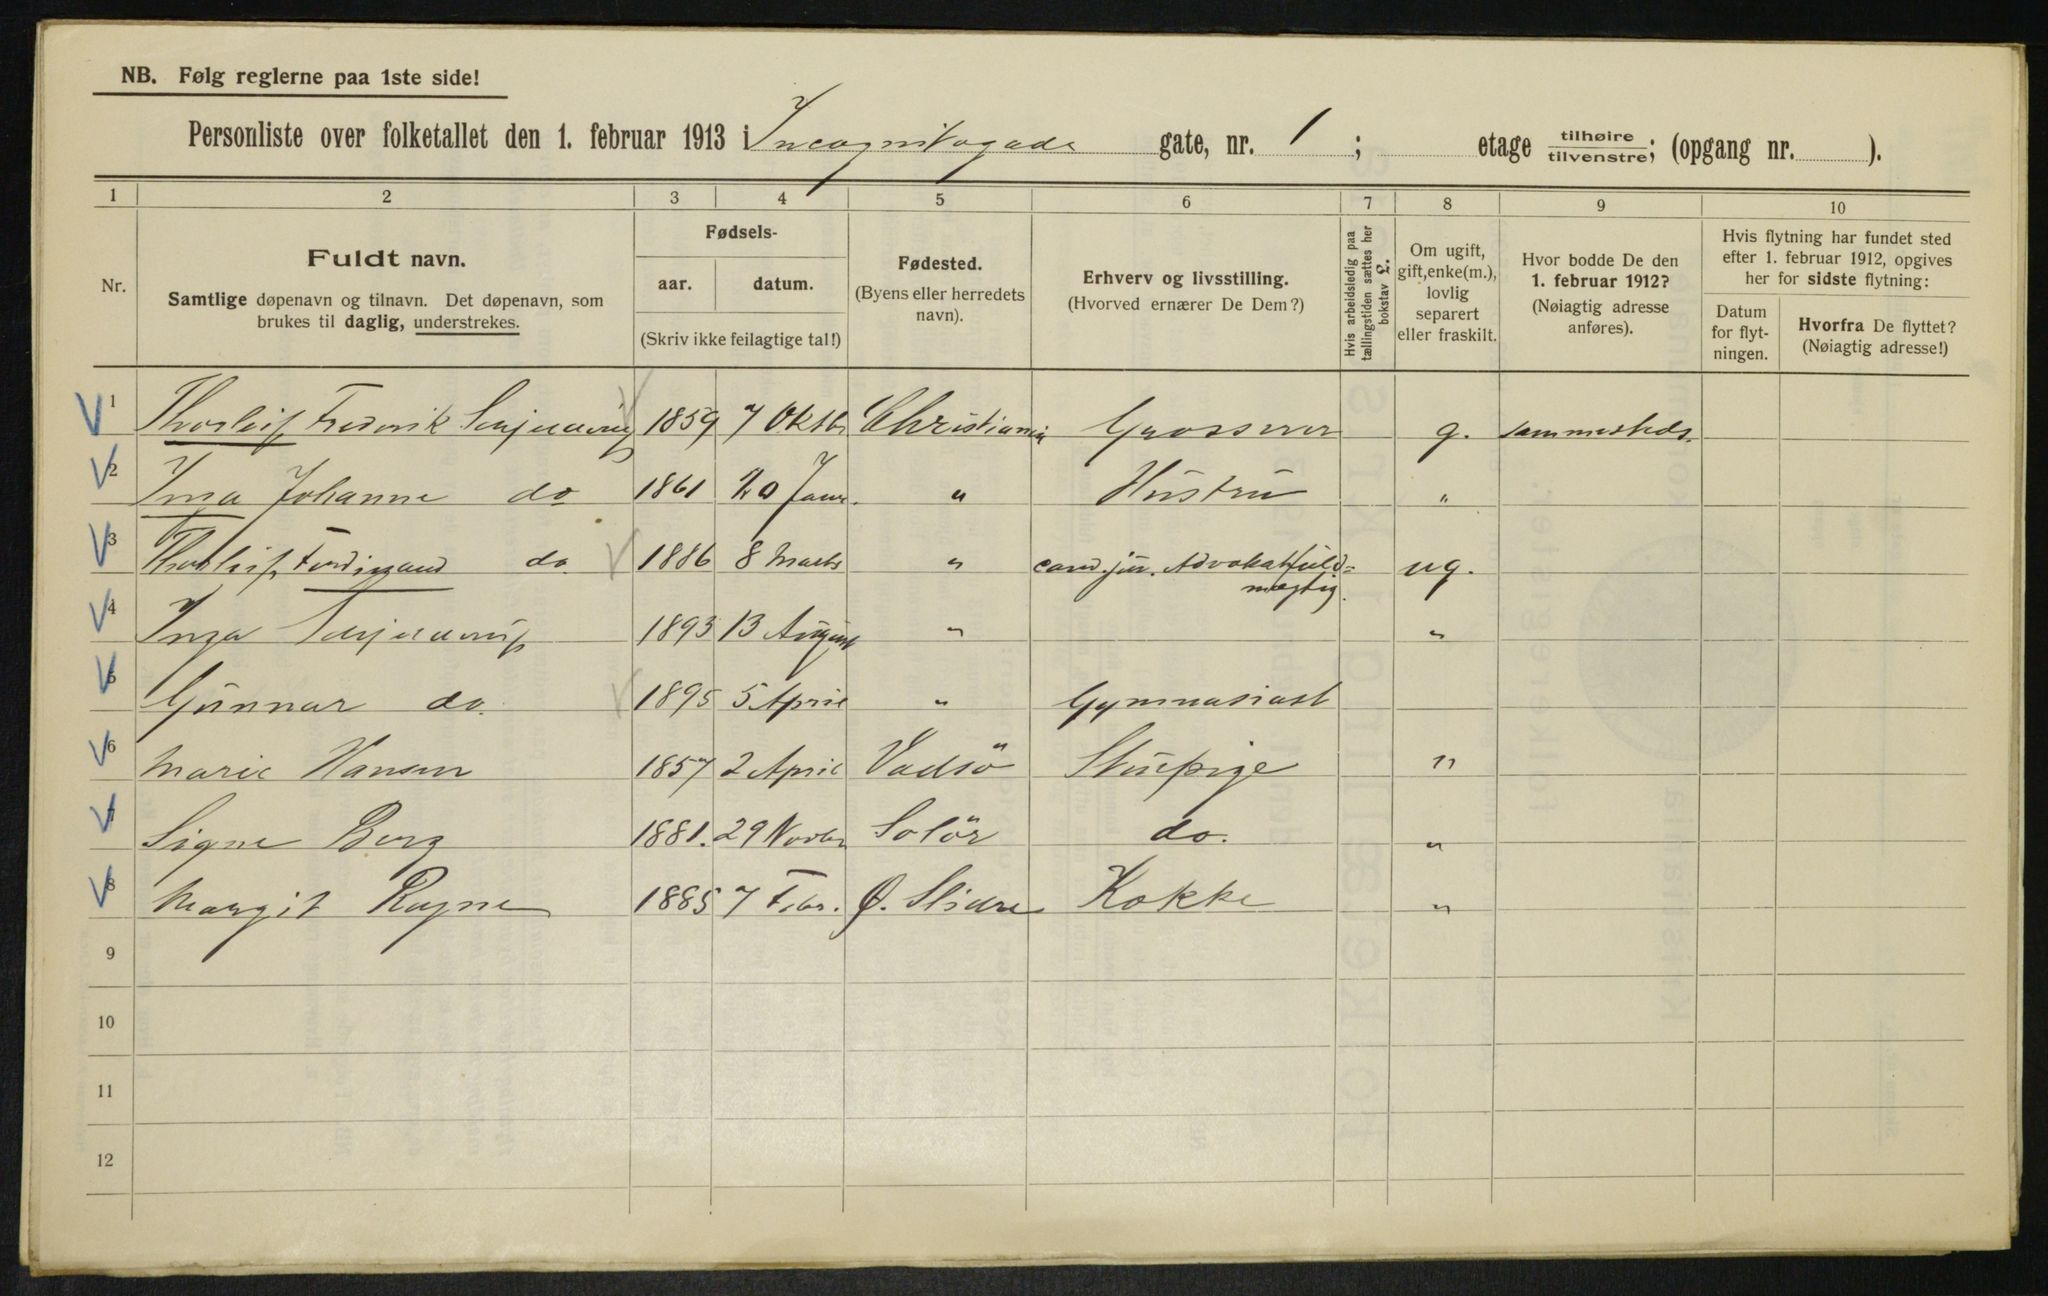 NB. Følg reglerne paa 1ste side!
Personliste over folketallet den 1. februar 1913 i Incognitogade gate, nr. 1; etage tilhøire/tilvenstre; (opgang nr. ).
1 2 3 4 5 6 7 8 9 10
Nr.
Fuldt navn.
Samtlige døpenavn og tilnavn. Det døpenavn, som
brukes til daglig, understrekes.
Fødsels-
aar. datum.
(Skriv ikke feilagtige tal!)
Fødested.
(Byens eller herredets
navn).
Erhverv og livsstilling.
(Hvorved ernærer De Dem?)
Hvis arbeidsledig paa
tællingstiden sættes her
bokstav £.
Om ugift,
gift, enke(m.),
lovlig
separert
eller fraskilt.
Hvor bodde De den
1. februar 1912?
(Nøiagtig adresse
anføres).
Hvis flytning har fundet sted
efter 1. februar 1912, opgives
her for sidste flytning:
Datum
for flyt-
ningen.
Hvorfra De flyttet?
(Nøiagtig adresse!)
1 Thorleif Frederik 1859 7 Oktbr Christiania Grosserer g. sammesteds.
2 Inga Johanne do 1861 20 Janr. " Hüstrü "
3 Thorleif Ferdinand do. 1886 8 Marts " cand. jür. Advokatfüld=
mægtig. ug.
4 Inga 1893 13 Aügust " "
5 Günnar do. 1895 5 April " Gymnasiast
6 Marie Hansen 1857 2 April Vadsö Stüepige "
7 Signe Berg 1881. 29 Novbr Solör do. "
8 Margit Rogne 1885 7 Febr. Ø. Slidre Kokke "
9
10
11
12